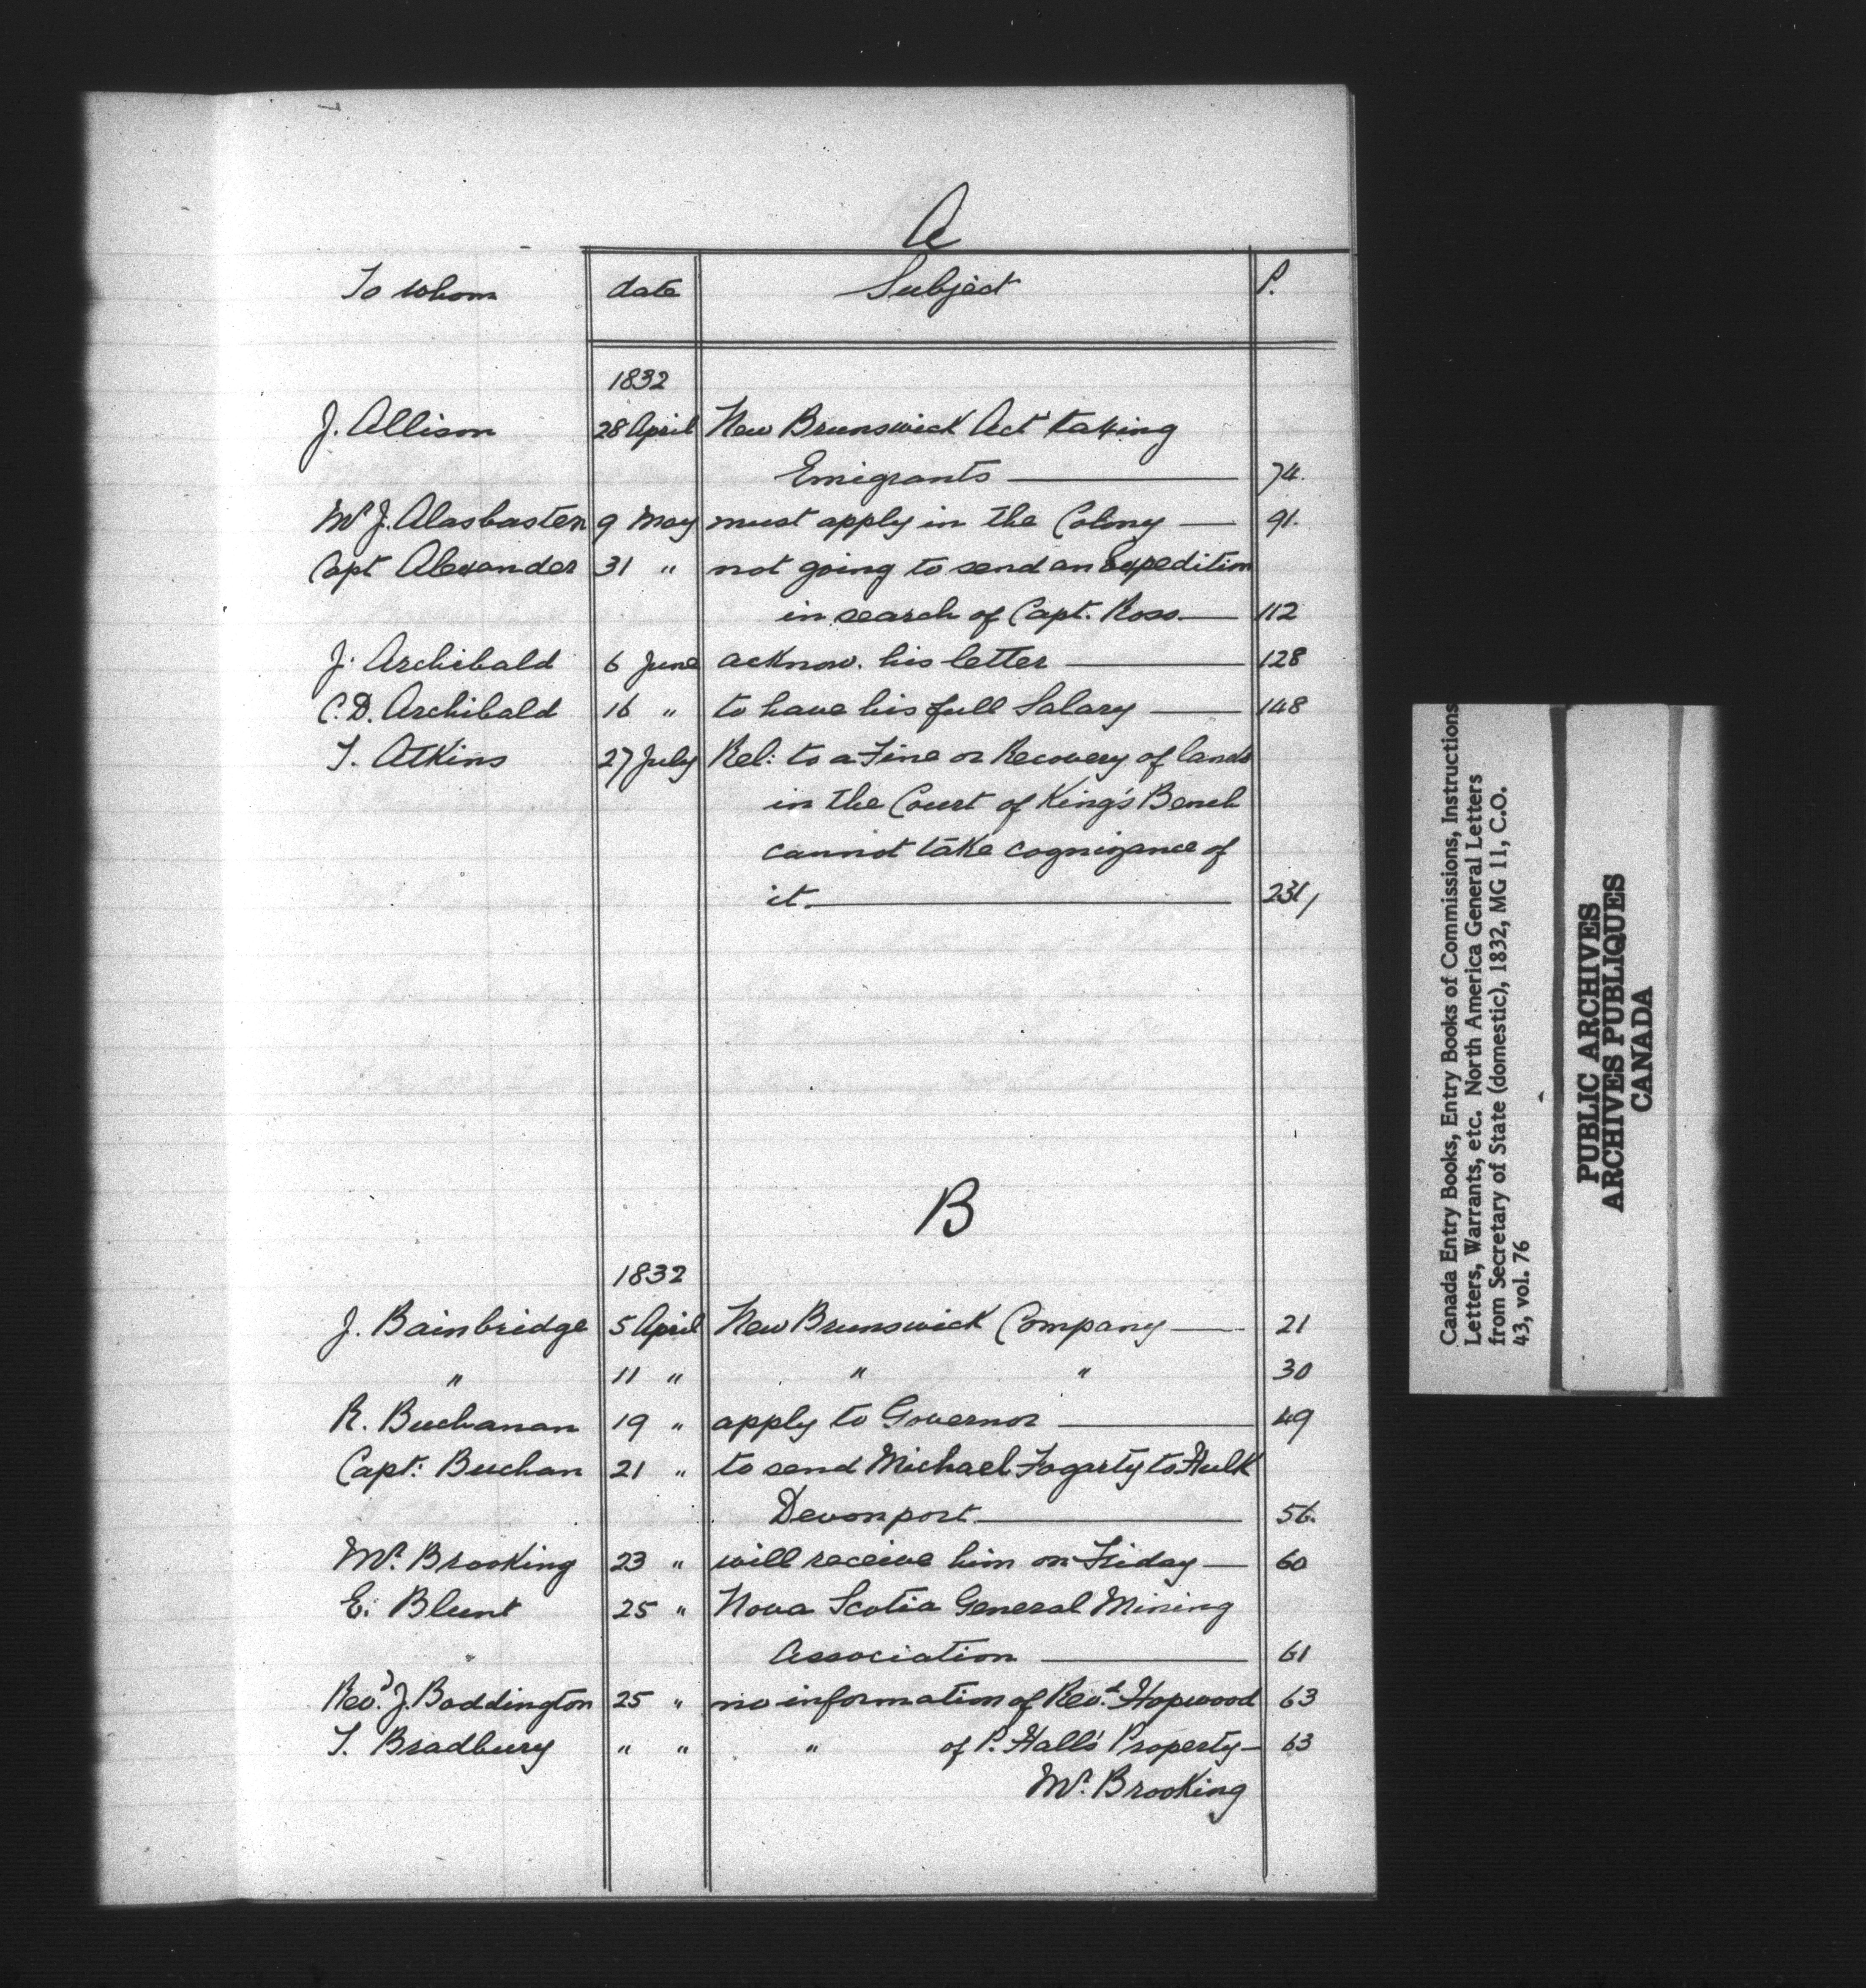 A
To whom date Subject P.
1832
J. Allison 28 April New Brunswick Act taxing
Emigrants 74.
Mr J. Alasbasten 9 May must apply in the Colony 91.
Capt Alexander 31 " not going to send an Expedition
in search of Capt. Ross. 112
J. Archibald 6 June acknow. his letter 128
C.D. Archibald 16 " to have his full Salary 148
T. Atkins 27 July Rel: to a Fine or Recovery of lands
in the Court of King's Bench
cannot take cognizance of
it. 231/
B
1832
J. Bainbridge 5 April New Brunswick Company 21
" 11 " " " 30
R. Buchanan 19 " apply to Governor 49
Capt: Buchan 21 " to send Michael Fogarty to Hulk
Devonport. 56.
Mr. Brooking 23 " will receive him on Friday 60
E. Blunt 25 " Nova Scotia General Mining
Association 61
Revd. J. Boddington 25 " no information of Revd. Hopwood 63
T. Bradbury " " " of P. Hall's Property 63
Mr. Brooking
Canada Entry Books, Entry Books of Commissions, Instructions
Letters, Warrants, etc. North America General Letters
from Secretary of State (domestic), 1832, MG 11, C.O.
43, vol. 76
PUBLIC ARCHIVES
ARCHIVES PUBLIQUES
CANADA